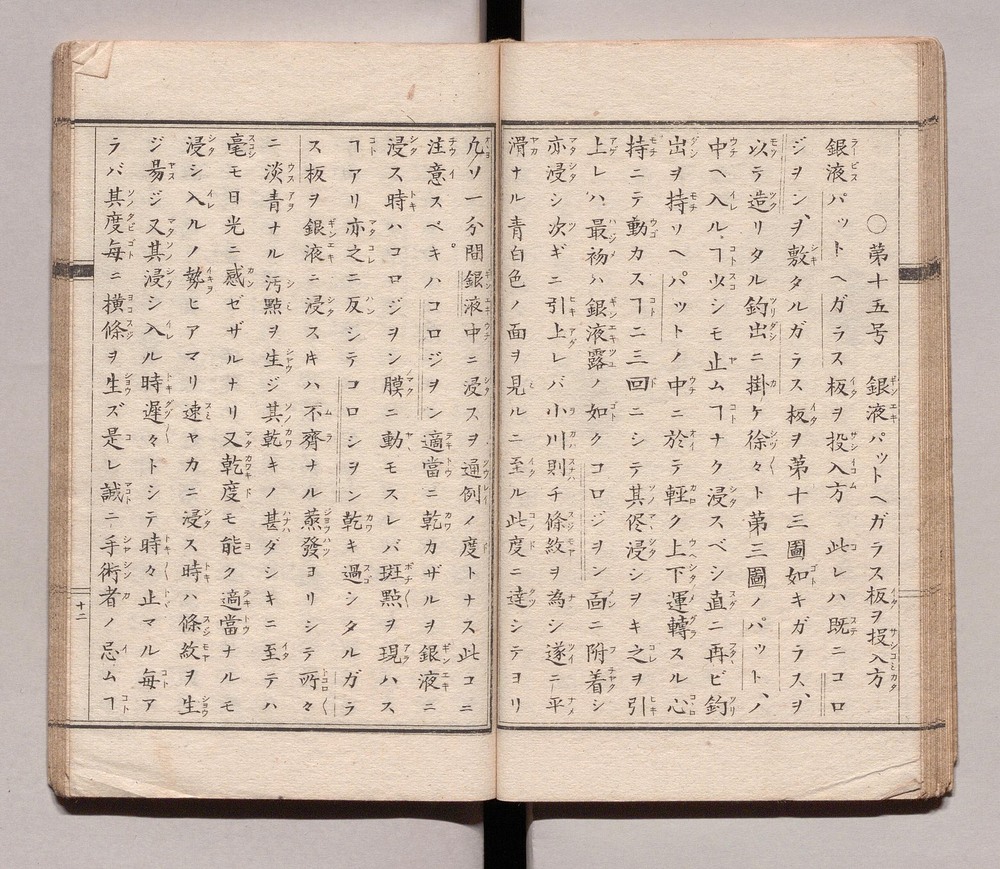 ○第十五号 銀液パットヘガラス板ヲ投入方
銀液パットヘガラス板ヲ投入方 此レハ既ニコロ
ジヲシン、ヲ敷タルガラス板ヲ第十三圖如キガラス、ヲ
以テ造リタル釣出ニ掛ケ徐々ト第三圖ノパット、ノ
中ヘ入ル、ヿ少シモ止ムヿナク浸スベシ直ニ再ビ釣
出ヲ持ソヘパットノ中ニ於テ輕ク上下運轉スル心
持ニテ動カスヿ二三回ニシテ其侭浸シヲキ之ヲ引
上レハ最初ハ銀液露ノ如クコロジヲシ面ニ附着シ
亦浸シ次ギニ引上レバ小川則チ條紋ヲ為シ遂ニ平
滑ナル青白色ノ面ヲ見ルニ至ル此度ニ達シテヨリ
九ソ一分間銀液中ニ浸スヲ通例ノ度トナス此コニ
注意スベキハコロジヲシン適當ニ乾カザルヲ銀液ニ
浸ス時ハコロジヲン膜ニ動モスレバ斑點ヲ現ハス
ヿアリ亦之ニ反シテコロシヲン乾キ過シタルガラ
ス板ヲ銀液ニ浸ス片ハ不齊ナル蒸發ヨリシテ所々
ニ淡青ナル汚點ヲ生ジ其乾キノ甚ダシキニ至テハ
毫モ日光ニ感ゼザルナリ又乾度モ能ク適當ナルモ
浸シ入ルノ勢ヒアマリ速ヤカニ浸ス時ハ條紋ヲ生
ジ昜ジ又其浸シ入ル時遅々トシテ時々止マル毎ア
ラバ其度毎ニ横條ヲ生ズ是レ誠ニ手術者ノ忌ムヿ
十二